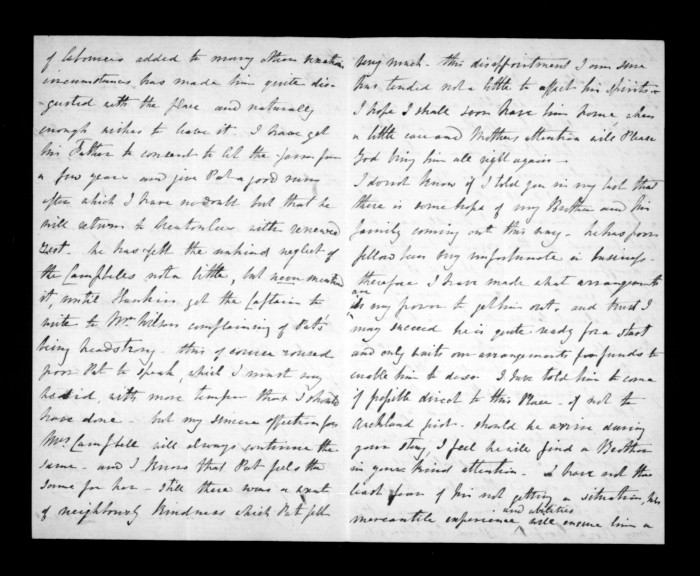 of labourers added to many other vexatious
circumstances has made him quite dis-
gusted with the place and naturally
enough wishes to leave it. I have got
his Father to consent to let the farm for
a few years and give Pat a good run
after which I have no doubt but that he
will return to with renewed
zest. he has felt the unkind neglect of
the Campbells not a little, but never mentioned
it, until Hawkins got the Captain to
write to Mr Wilson complaining of Pat's
being headstrong. this of course roused
poor Pat to speak, which I must say
he did, with more temper than I should
have done. but my sincere affection for
Mrs Campbell will always continue the
same - and I know that Pat feels the
same for her - Still there was a want
of neighbourly kindness which Pat felt
very much - this disappointment I am sure
has tended not a little to affect his Spirits -
I hope I shall soon have him home when
a little care and Mothers attention will Please
God bring him all right again -
I do not know if I told you in my last that
there is some hope of my Brother and his
family coming out this way - he has poor
fellow been very unfortunate in business -
therefore I have made what arrangements
in my power to get him out, and trust I
may succeed he is quite ready for a start
and only waits our arrangements for funds to
enable him to do so. I have told him to come
if possible direct to this Place - if not to
Auckland first - should he arrive during
your stay, I feel he will find a Brother
in your kind attention. I have not the
least fear of his not getting a situation, his
mercantile experience and abilities will ensure him a